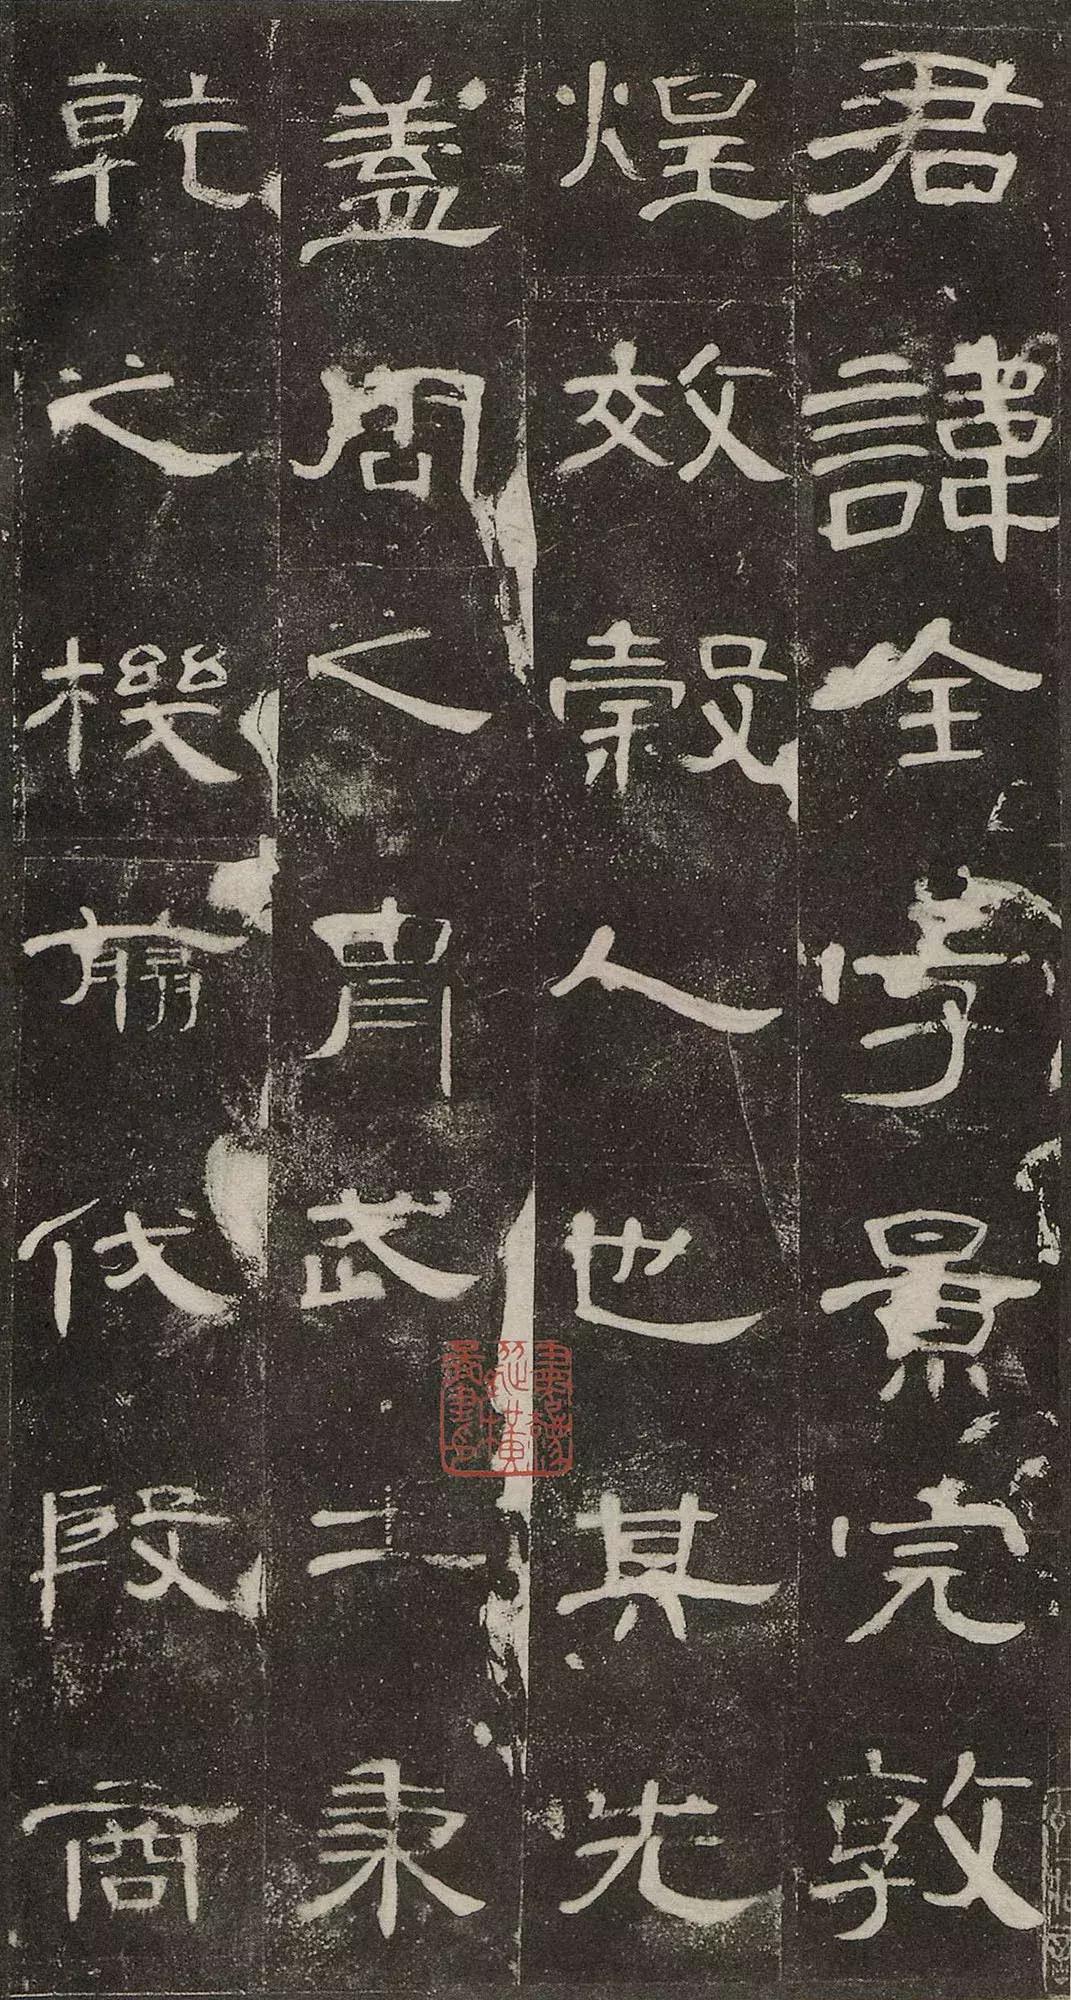 君諱全字景完敦
煌效穀人也其先
蓋周之胄武二秉
乾之機翦伐殷商